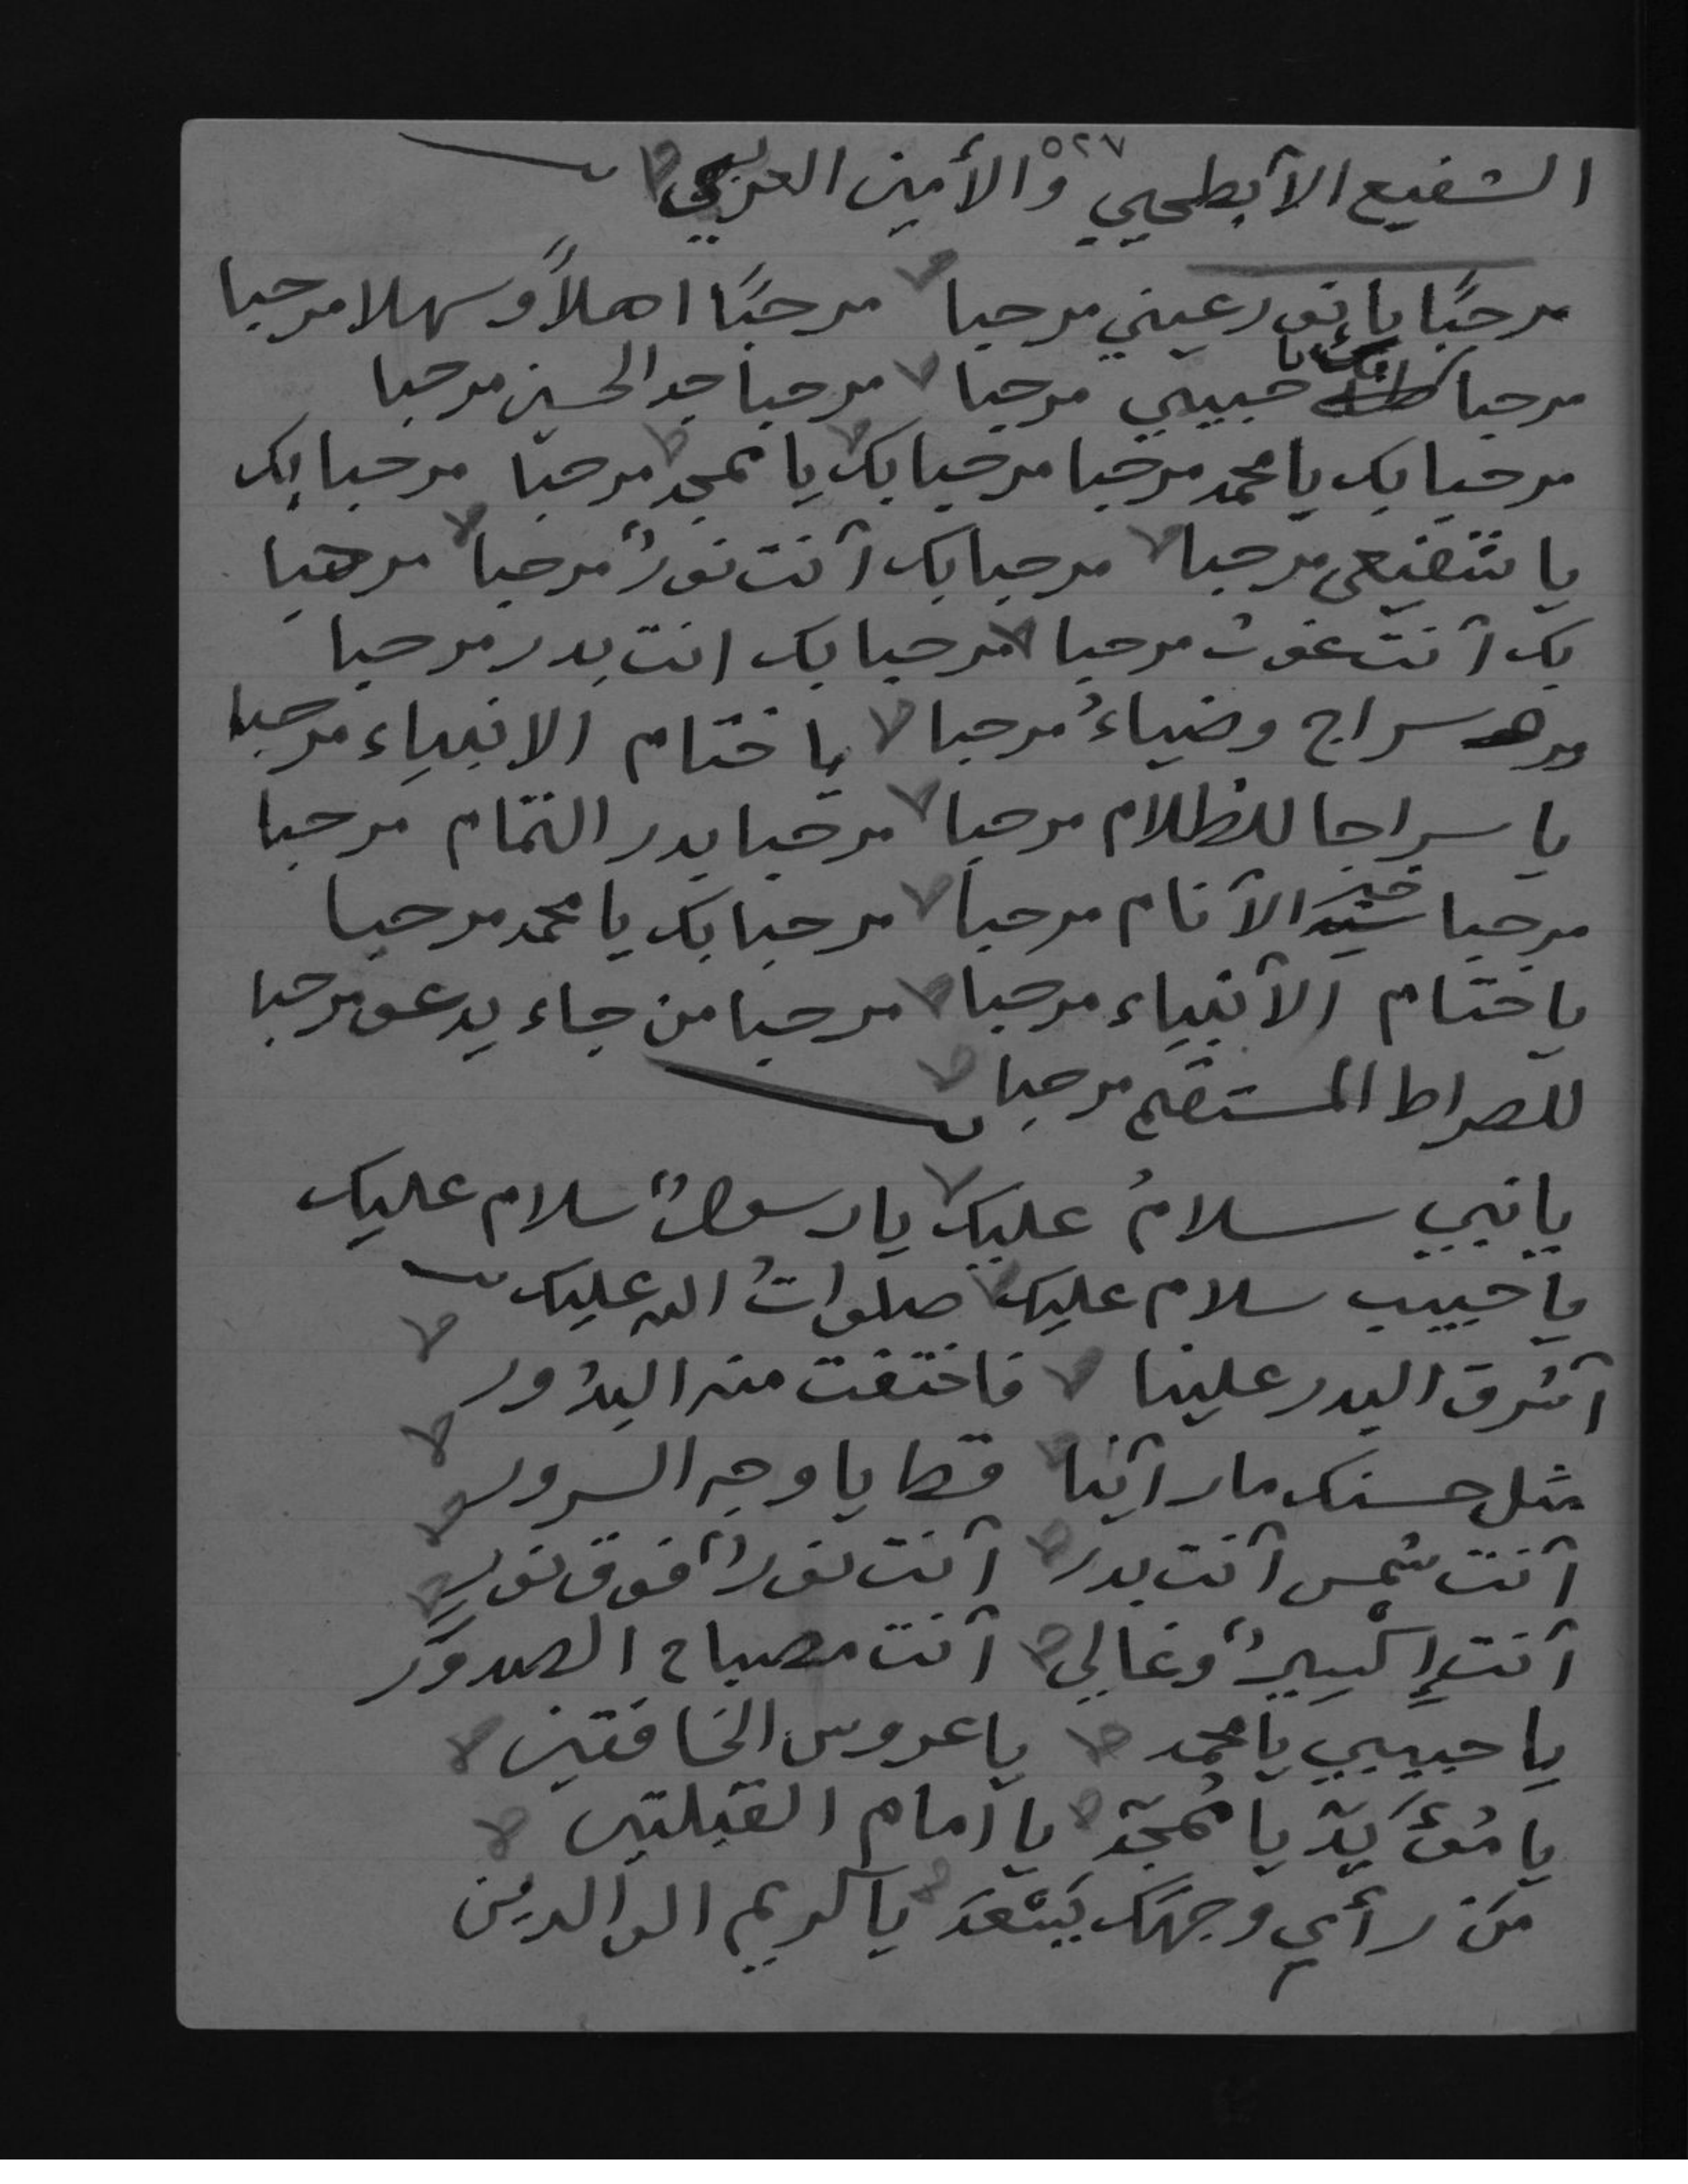 ٥٢٧
الشفيع الآبطحيي والأمين العربي
مرحبًا يا نور عيني مرحبا مرحبًا اهلاً وسهلا مرحبا
مرحبا حبيبي مرحبا مرحبا جد الحسين مرحبا
مرحبا بك يا محمد مرحبا مرحبا بك يا ممجد مرحبا مرحبا بك
يا شفيعي مرحبا مرحبا بك آنت نورٌ مرحبا مرحبا
بك آنت غوث مرحبا مرحبا بك انت بدر مرحبا
سراج وضياءُ مرحبا يا ختام الانبياء مرحبا
يا سراجا للظلام مرحبا مرحبا بدر التمام مرحبا
مرحبا خير الآنام مرحبا مرحبا بك يا محمد مرحبا
يا ختام الآنبياء مرحبا مرحبا من جاء يدعو مرحبا
للصراط المستقيم مرحبا
يا نبيي سلامُ عليك يا رسولٌ سلام عليك
يا حبيب سلام عليك صلواتُ الله عليك
آشرق البدر علينا فاختفت منه البدُور
مثل حسنك ما رآينا قط يا وجه السرور
آنت شمس آنت بدر آنت نورٌ فوق نور
آنت إكسيرٌ وغالي آنت مصباح الصدور
يا حبيبي يا محمد يا عروس الخافقين
يا مُؤَيد يا مُمجد يا امام القبلتين
مَن رأي وجهك يَسْعَد يا كريم الوالدين